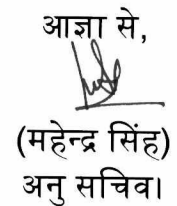 आज्ञा से,
(महेन्द्र सिंह)
अनु सचिव।